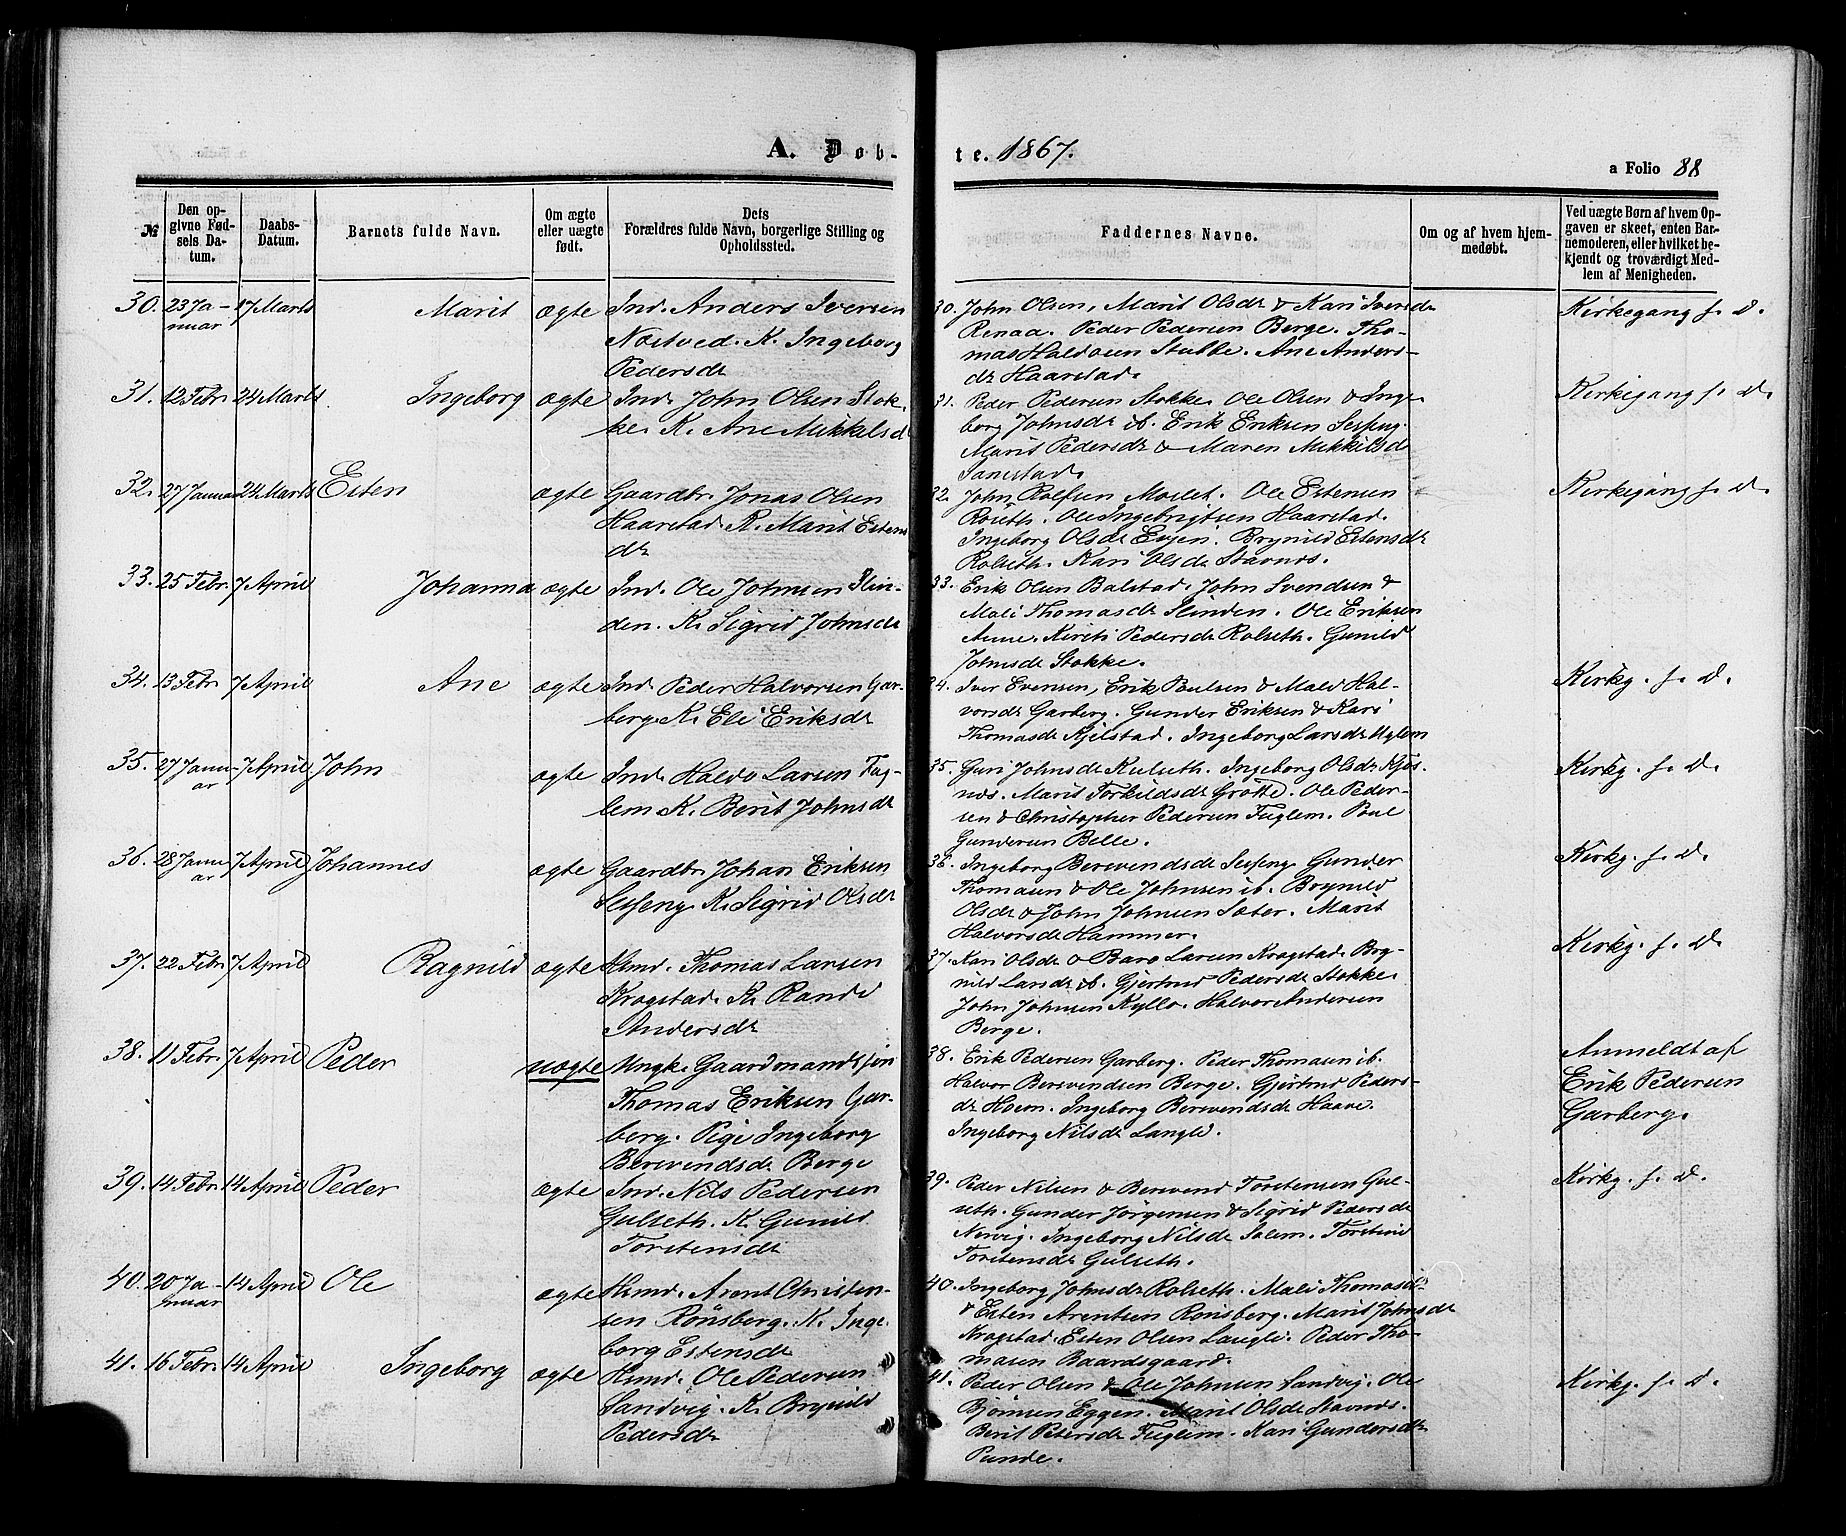 A. Døb-
te. 1867.
a Folio 88
№
Den op-
givne Fød-
sels Da-
tum.
Daabs-
Datum.
Barnets fulde Navn.
Om ægte
eller uægte
født.
Dets
Forældres fulde Navn, borgerlige Stilling og
Opholdssted.
Faddernes Navne.
Om og af hvem hjem-
medøbt.
Ved uægte Børn af hvem Op-
gaven er skeet, enten Bar-
nemoderen, eller hvilket be-
kjendt og troværdigt Med-
lem af Menigheden.
30. 23 Ja- 17 Marts Marit ægte Ind. Anders Iversen
nuar Nostved. K. Ingeborg
Pedersdr
30. John Olsen, Marit Olsdr & Kari Iversdr
Renaa. Peder Pedersen Berge. Tho-
mas Haldosen Stubbe. Ane Anders-
dr Haarstad.
Kirkegang f. D.
31. 12 Febr. 24 Marts Ingeborg ægte Ind. John Olsen Stok-
ke. K. Ane Mikkelsd
31. Peder Pedersen Stokke. Ole Olsen & Inge-
borg Johnsdr ib. Erik Eriksen Sesseng.
Marit Pedersdr & Maren Mikkelsdr
Kirkegang f. D.
32. 27 Januar 24 Marts Esten ægte Gaardbr. Jonas Olsen
Haarstad K. Marit Estens
dr
32. John Rolfsen Moslet. Ole Estensen
Rolseth. Ole Ingebrigtsen Haarstad.
Ingeborg Olsdr Evjen. Brynild Estensdr
Rolseth. Kari Olsdr Stavnes.
Kirkegang f. D.
33. 25 Febr. 7 April Johanna ægte Ind. Ole Johnsen Slin-
den. K. Sigrid Johnsdr
33. Erik Olsen Balstad. John Svendsen &
Mali Thomasdr Slinden. Ole Eriksen
Aune. Kirsti Pedersdr Rolseth. Gunild
Johnsdr Stokke.
34. 13 Febr. 7 April Ane ægte Ind. Peder Halvorsen Gar-
berg. K. Eli Eriksdr
34. Iver Evensen, Erik Poulsen & Mali Hal-
vorsdr Garberg. Gunder Eriksen & Kari
Thomasdr Kjelstad. Ingeborg Larsdr Uglem
Kirkg. f. D.
35. 27 Janu- 7 April John ægte Ind. Haldo Larsen Fug-
ar lem K. Berit Johnsdr
35. Guri Johnsdr Kulseth. Ingeborg Olsdr Kjøs-
nes. Marit Torkildsdr Grøtte. Ole Peder-
sen & Christopher Pedersen Fuglem. Poul
Gundersen Belle.
Kirkg. f. D.
36. 28 Janu- 7 April Johannes ægte Gaardbr. Johan Eriksen
ar Sesseng K. Sigrid Olsdr
36. Ingeborg Berevendsdr Sesseng Gunder
Thomasen & Ole Johnsen ib. Brynild
Olsdr & John Johnsen Sæter. Marit
Halvorsdr Hammer.
Kirkg. f. D.
37. 22 Febr. 7 April Ragnild ægte Hsmd. Thomas Larsen
Kragstad. K. Randi
Andersdr
37. Kari Olsdr & Baro Larsen Kragstad. Bry-
nild Larsdr ib. Gjertrud Pedersdr Stokke.
John Johnsen Kyllo. Halvor Andersen
Berge.
Kirkg. f. D.
38. 11 Febr. 7 April Peder uægte Ungk. Gaardmandssøn
Thomas Eriksen Gar-
berg. Pige Ingeborg
Berevendsdr Berge
38. Erik Pedersen Garberg. Peder Thomasen ib.
Halvor Berevendsen Berge. Gjertrud Peders-
dr Hoem. Ingeborg Berevendsdr Haave.
Ingeborg Nilsdr Langli.
Anmeldt af
Erik Pedersen
Garberg.
39. 14 Febr. 14 April Peder ægte Ind. Nils Pedersen
Gulseth. K. Gunild
Torstensdr
39. Peder Nilsen & Berevend Torstensen Gul-
seth. Gunder Jørgensen & Sigrid Pedersdr
Nervig. Ingeborg Nilsdr Salem. Torstind
Torstensdr Gulseth.
Kirkg. f. D.
40. 20 Ja- 14 April Ole ægte Hsmd. Arent Christen-
nuar sen Rønsberg. K. Inge-
borg Estensdr
40. Ingeborg Johnsdr Rolseth. Mali Thomasdr
& Esten Arentsen Rønsberg. Marit Johnsdr
Kragstad. Esten Olsen Langli. Peder Tho-
masen Baardsgaard.
41. 16 Febr. 14 April Ingeborg ægte Hsmd. Ole Pedersen
Sandvig. K. Brynild
Pedersdr
41. Peder Olsen & Ole Johnsen Sandvig. Ole
Bjørnsen Eggen. Marit Olsdr Stavnes.
Berit Petersdr Fuglem. Kari Gundersdr
Punde.
Kirkg. f. D.